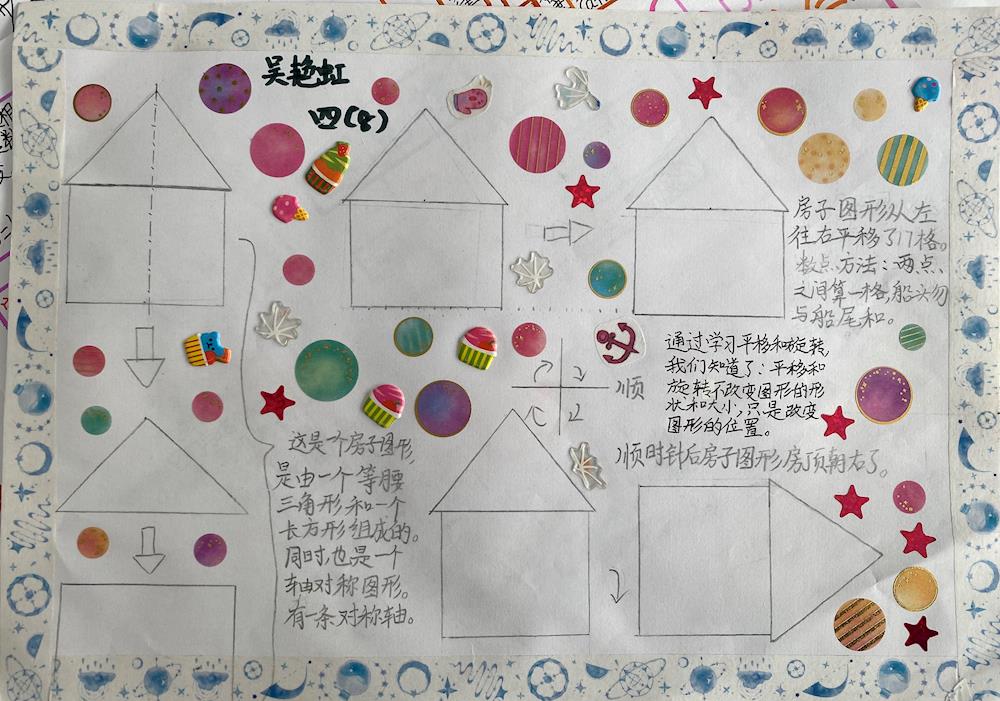 吴艳虹
四(8)
房子图形从左
往右平移了17格。
数点方法：两点
之间算一格，船头勿
与船尾和。
通过学习平移和旋转，
我们知道了：平移和
旋转不改变图形的形
状和大小，只是改变
图形的位置。
顺
顺时针后房子图形房顶朝右了。
这是一个房子图形，
是由一个等腰
三角形和一个
长方形组成的。
同时，也是一个
轴对称图形。
有一条对称轴。